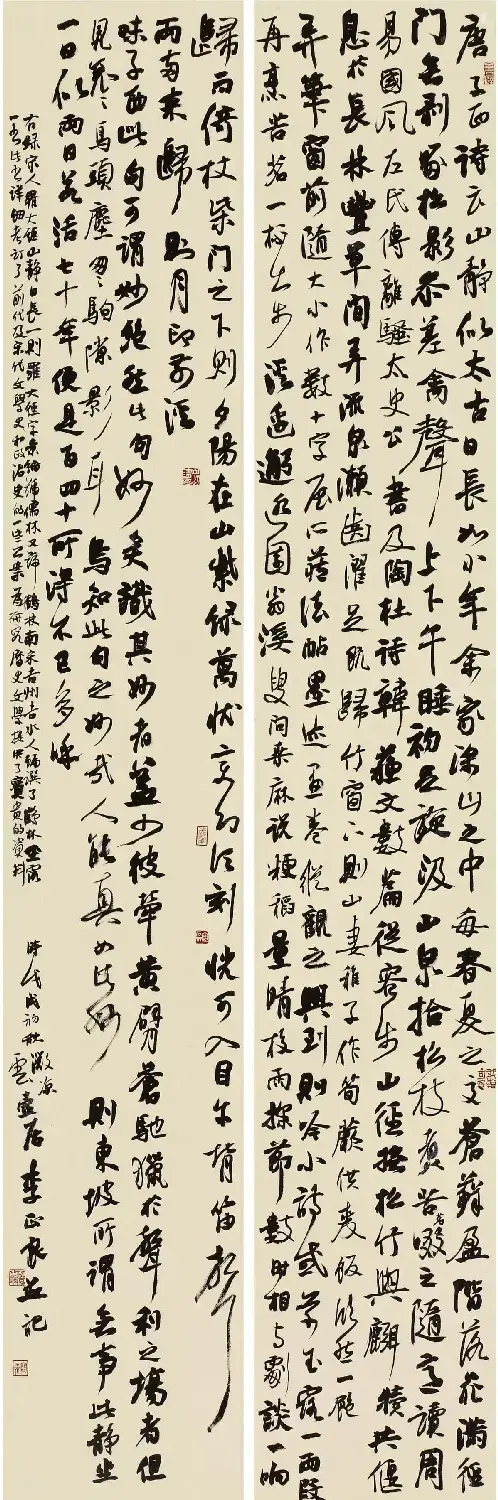 唐子西詩云山靜似太古日長如小年余家深山之中每春夏之交蒼蘚盈階落花滿徑
門無剝啄松影參差禽聲上下午睡初足旋汲山泉拾松枝煮苦茗啜之隨意讀周
易國風左氏傳離騷太史公書及陶杜詩韓蘇文數篇從容步山徑撫松竹與麛犢共偃
息於長林豐草間弄流泉漱齒濯足既歸竹窗下則山妻稚子作筍蕨供麥飯欣然一飽
弄筆窗前隨大小作數十字展所藏法帖墨迹畫卷縱觀之興到則吟小詩或草玉露一兩段
再烹苦茗一杯出步溪邊邂逅園翁溪叟問桑麻說粳稻量晴校雨探節數時相與劇談一晌
歸而倚杖柴門之下則夕陽在山紫綠萬狀變幻頃刻恍可入目牛背笛聲
兩兩來歸則月印前溪
味子西此句可謂妙絕然此句妙矣識其妙者蓋少彼牽黃臂蒼馳獵於聲利之場者但
見袞〻馬頭塵匆〻駒隙影耳烏知此句之妙哉人能真知此妙則東坡所謂無事此靜坐
一日似兩日若活七十年便是百四十所得不已多乎
右録宋人羅大經山靜日長一則羅大經字景綸號儒林又號鶴林南宋吉州吉水人編撰了鶴林玉露
一書此書詳細考訂了前代及宋代文學史和政治史的一些公案為研究歷史文學提供了寶貴的資料
時戊戌初秋
壺居李正良並記